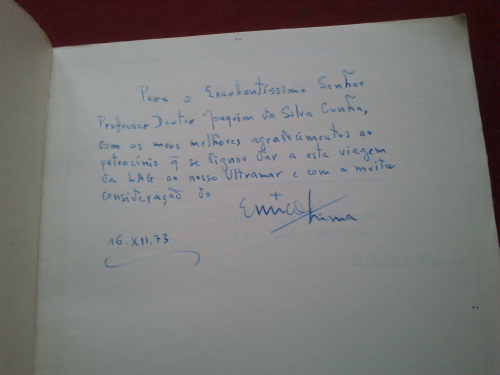 Para o Excelentíssimo Senhor
Professor Doutor Joaquim da Silva Cunha,
com os meus melhores agradecimentos ao
patrocínio q̃ se dignou dar a esta viagem
da LAG ao nosso Ultramar e com a muita
consideração do
Lima
16.XII.73